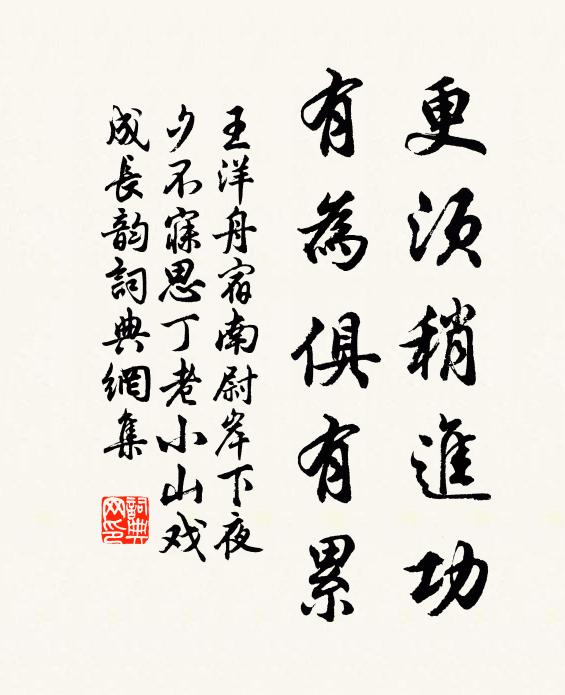 更須稍進功
有為俱有累
王洋舟宿南尉岸下夜
夕不寐思丁老小山戏
成長韵詞典網集
詞典网印